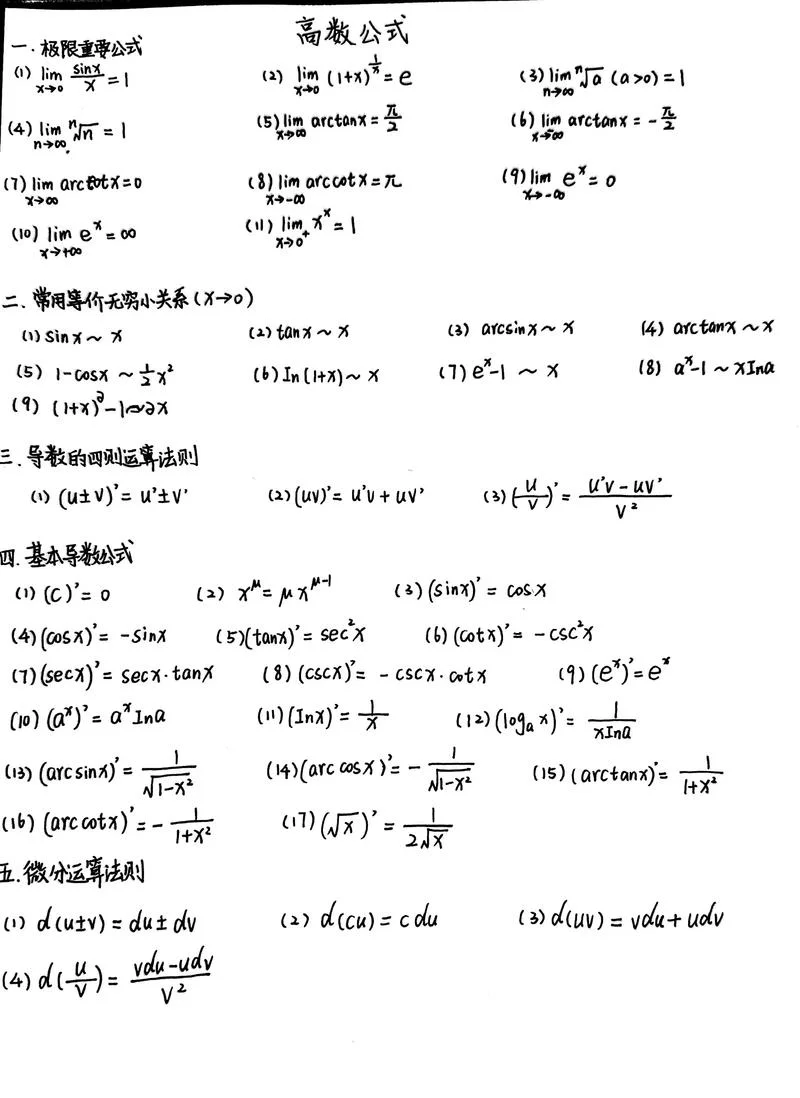 高数公式
一. 极限重要公式
(1) lim_{x→0} sinx/x = 1 (2) lim_{x→0} (1+x)^{1/x} = e (3) lim_{n→∞} ⁿ√a (a>0) = 1
(4) lim_{n→∞} ⁿ√n = 1 (5) lim_{x→∞} arctanx = π/2 (6) lim_{x→-∞} arctanx = -π/2
(7) lim_{x→∞} arccotx = 0 (8) lim_{x→-∞} arccotx = π (9) lim_{x→-∞} e^x = 0
(10) lim_{x→+∞} e^x = ∞ (11) lim_{x→0⁺} x^x = 1
二. 常用等价无穷小关系(x→0)
(1) sinx ~ x (2) tanx ~ x (3) arcsinx ~ x (4) arctanx ~ x
(5) 1-cosx ~ 1/2 x² (6) In(1+x) ~ x (7) e^x-1 ~ x (8) a^x-1 ~ xIna
(9) (1+x)^∂-1 ~ ∂x
三. 导数的四则运算法则
(1) (u±v)' = u'±v' (2) (uv)' = u'v + uv' (3) (u/v)' = (u'v - uv')/v²
四. 基本导数公式
(1) (C)' = 0 (2) x^μ = μx^{μ-1} (3) (sinx)' = cosx
(4) (cosx)' = -sinx (5) (tanx)' = sec²x (6) (cotx)' = -csc²x
(7) (secx)' = secx·tanx (8) (cscx)' = -cscx·cotx (9) (e^x)' = e^x
(10) (a^x)' = a^x Ina (11) (Inx)' = 1/x (12) (log_a x)' = 1/(xIna)
(13) (arcsinx)' = 1/√(1-x²) (14) (arccosx)' = -1/√(1-x²) (15) (arctanx)' = 1/(1+x²)
(16) (arccotx)' = -1/(1+x²) (17) (√x)' = 1/(2√x)
五. 微分运算法则
(1) d(u±v) = du±dv (2) d(cu) = cdu (3) d(uv) = vdu+udv
(4) d(u/v) = (vdu-udv)/v²